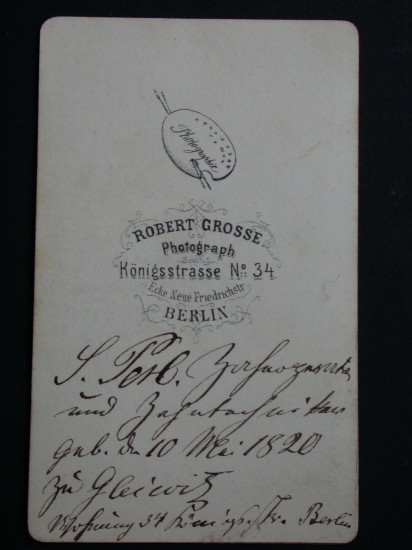 Photographie
ROBERT GROSSE
Photograph
Königsstrasse No 34
Ecke Neue Friedrichstr.
BERLIN
S.
und Zahntechniker
geb. d. 10 Mai 1820
zu Gleiwitz
Wohnung 34 Königs Str. Berlin